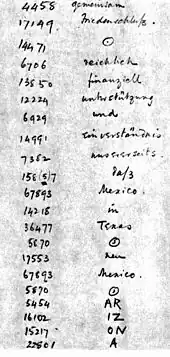 4458 gemeinsam
17149 Friedenschluß.
14471 ⊙
6706 reichlich
13850 finanziell
12224 unterstützung
6929 und
14991 einverständnis
7382 unsererseits.
158(5)7 da/3
67893 Mexico.
14218 in
36477 Texas
5870 ⊙
17553 neu
67893 Mexico.
5870 ⊙
5454 AR
16102 IZ
15217 ON
22801 A